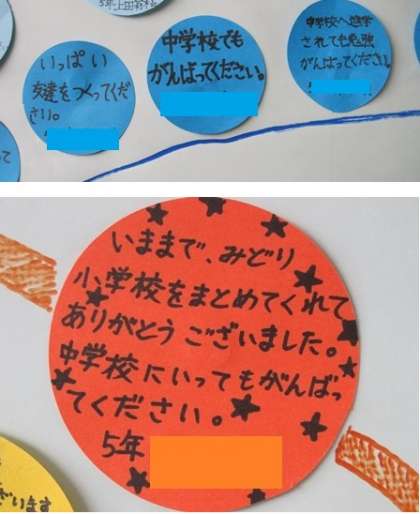 5年
いっぱい
友達をつくってくだ
さい。
中学校でも
がんばってください。
中学校へ進学
されても勉強
がんばってください。
って
いままで、みどり
小学校をまとめてくれて
ありがとうございました。
中学校にいってもがんばっ
てください。
5年
ざいます